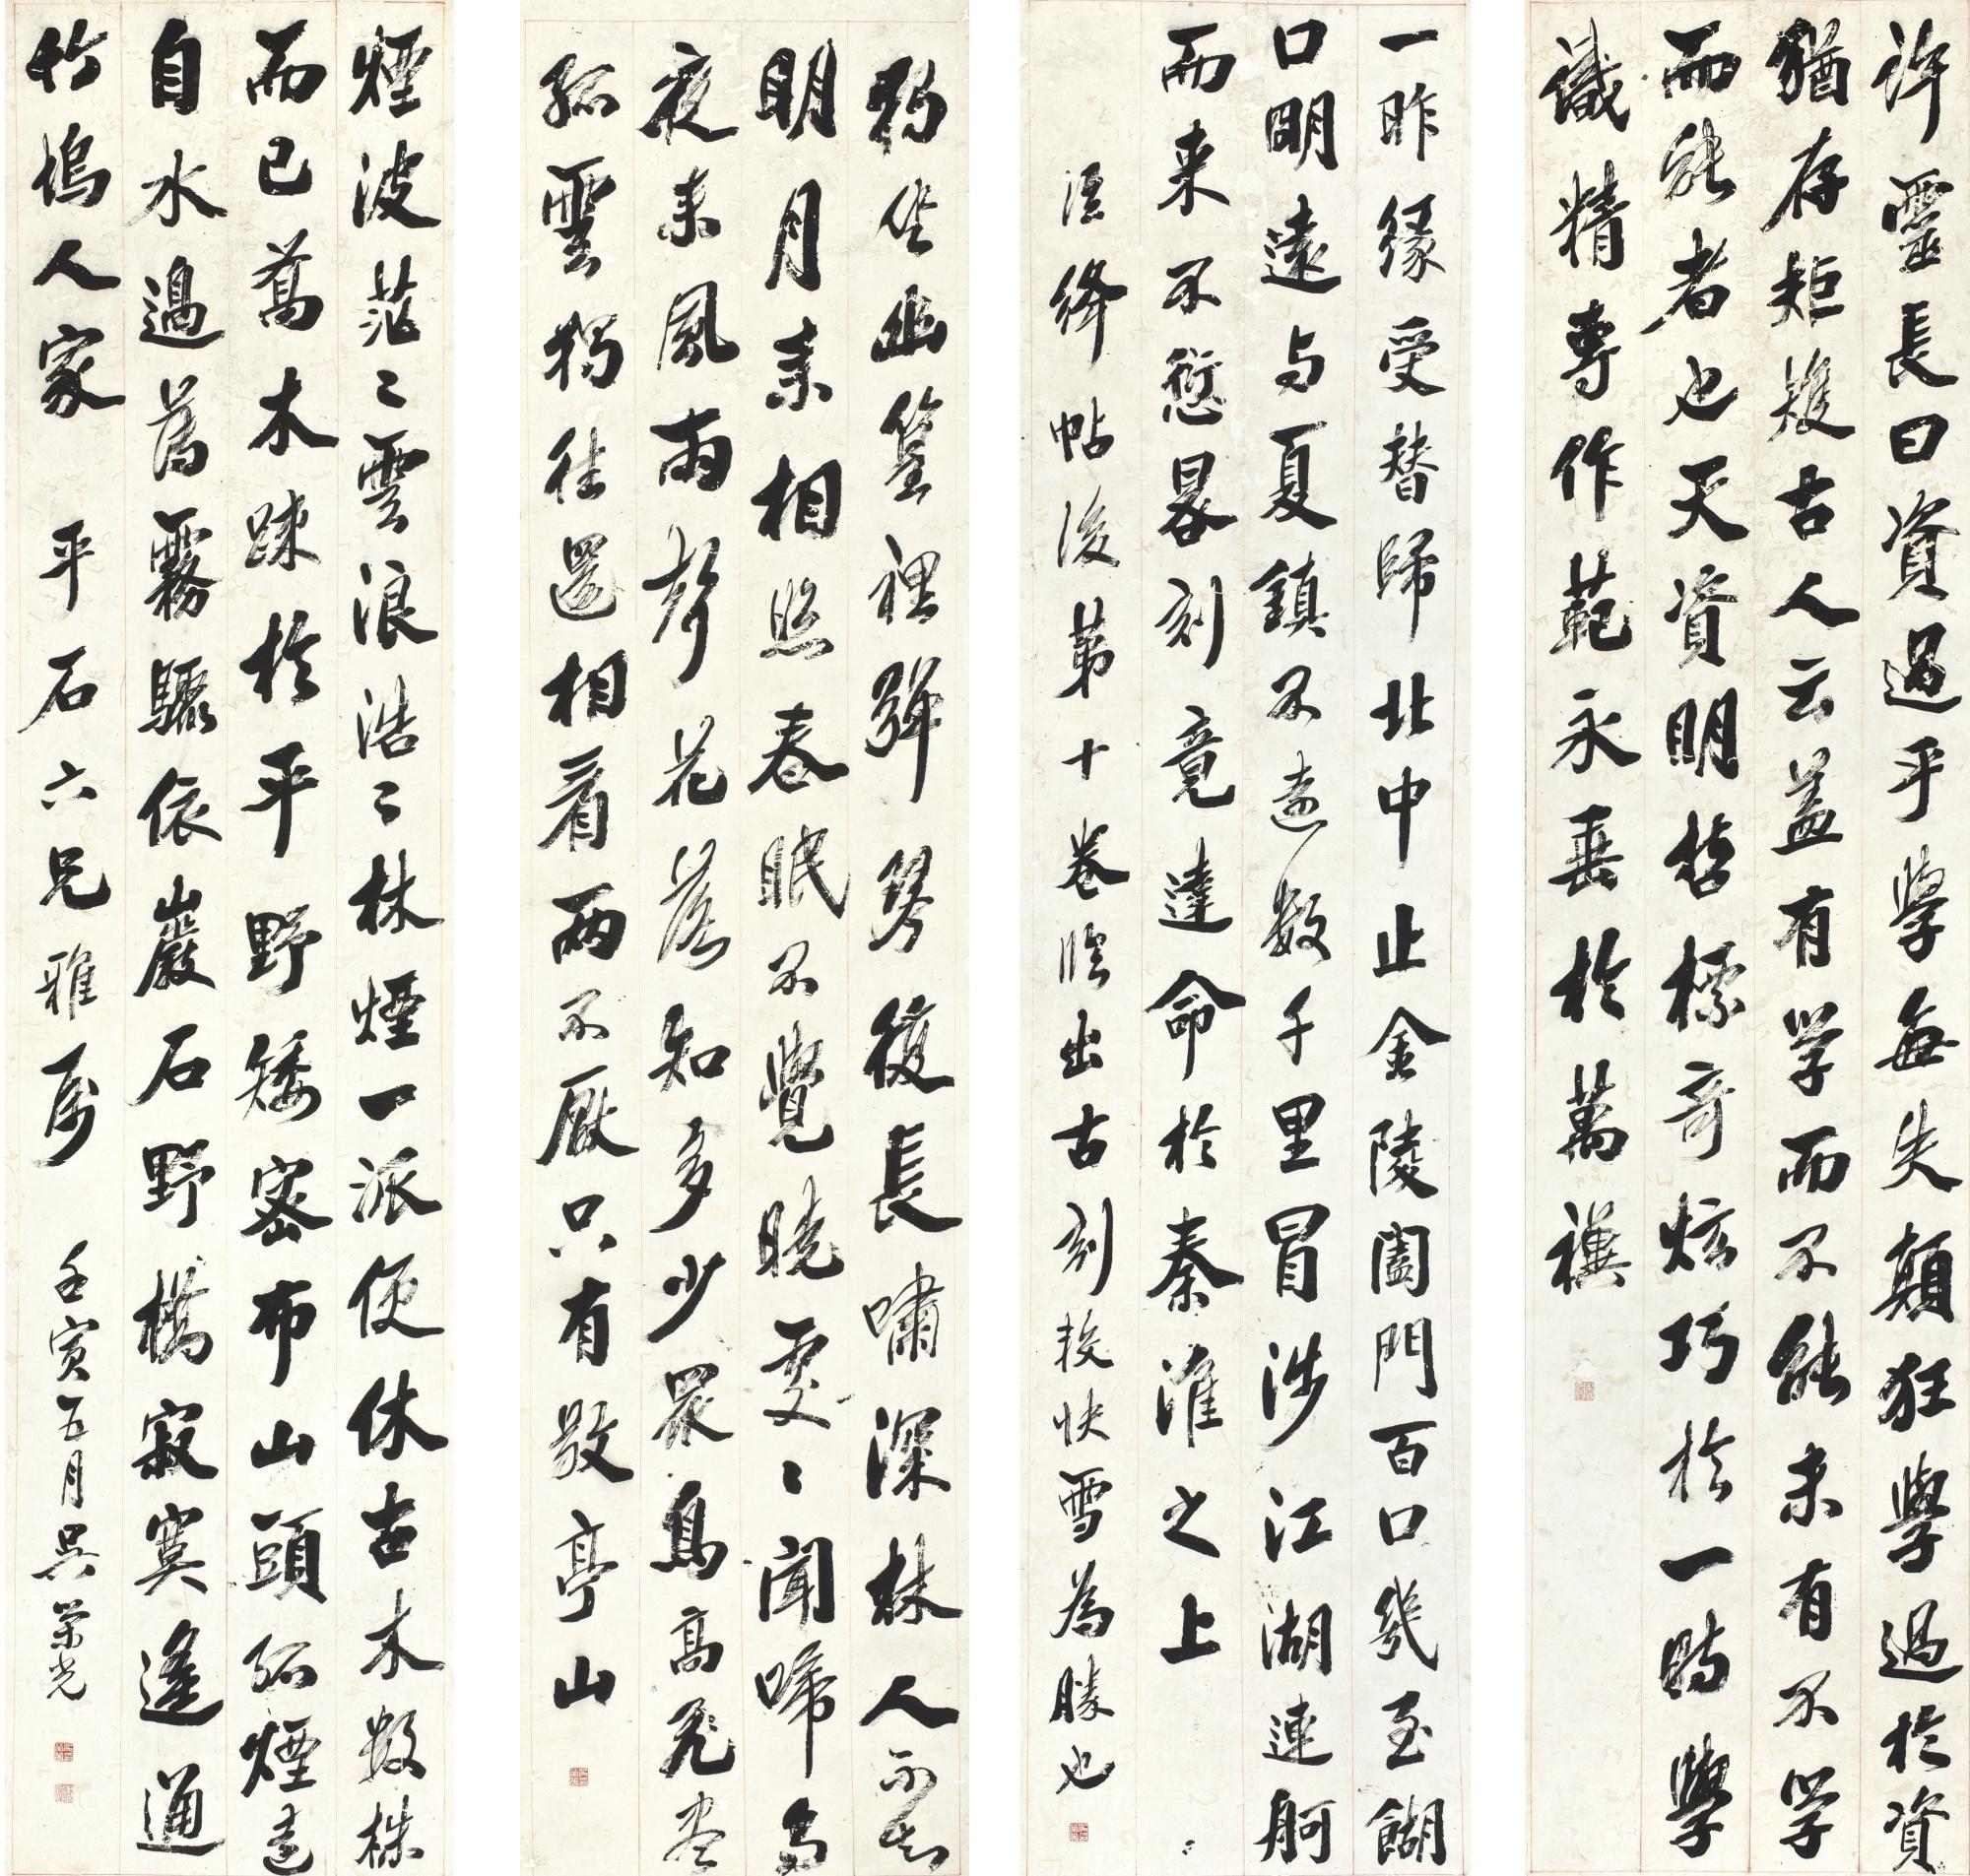 許靈長曰資過乎學每失顛狂學過於資
猶存矩矱古人云蓋有学而不能未有不学
而能者也天資明哲標奇炫巧於一時學
識精專作範永垂於萬禩
一昨緣受替歸北中止金陵闔門百口幾至餬
口明遠与夏鎮不遠数千里冒涉江湖連舸
而来不愆晷刻竟達命於秦淮之上
語絳帖後第十卷臨出古刻挍快雪為勝也
獨坐幽篁裡彈琴復長嘯深林人不知
明月來相照春眠不覺曉處〻聞啼鳥
夜來風雨聲花落知多少眾鳥高飛盡
孤雲獨往還相看兩不厭只有敬亭山
煙波茫〻雲浪浩〻林煙一派便休古木數株
而已喬木踈於平野矮密布山頭孤煙遠
自水過舊霧驟依巖石野橋寂寞遙通
竹塢人家 平石六兄雅属 壬寅五月吳荣光